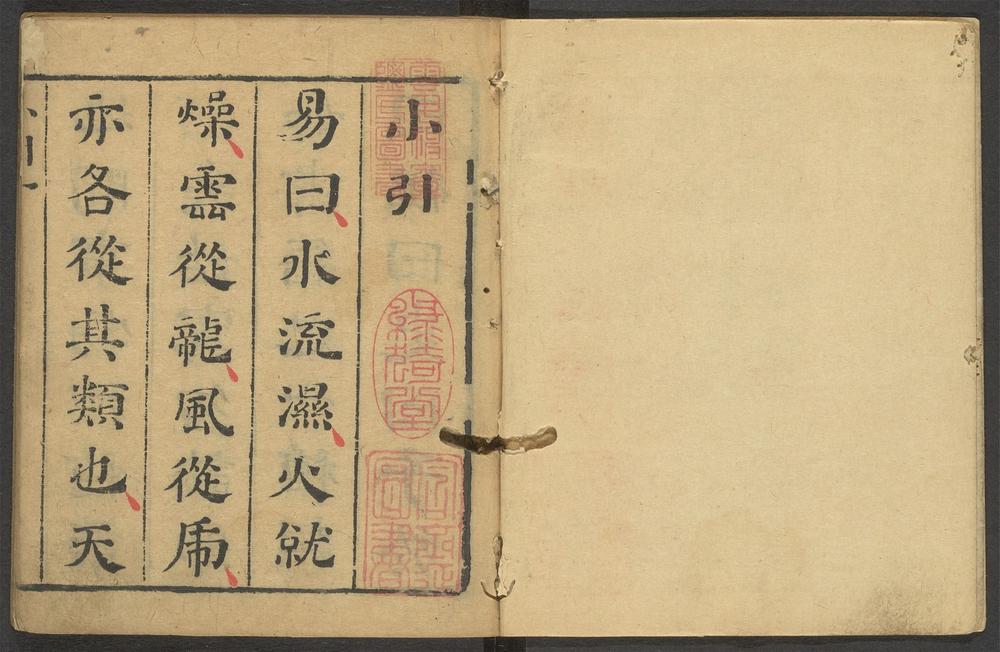 小引
易曰水流濕火就
燥雲從龍風從虎
亦各從其類也天